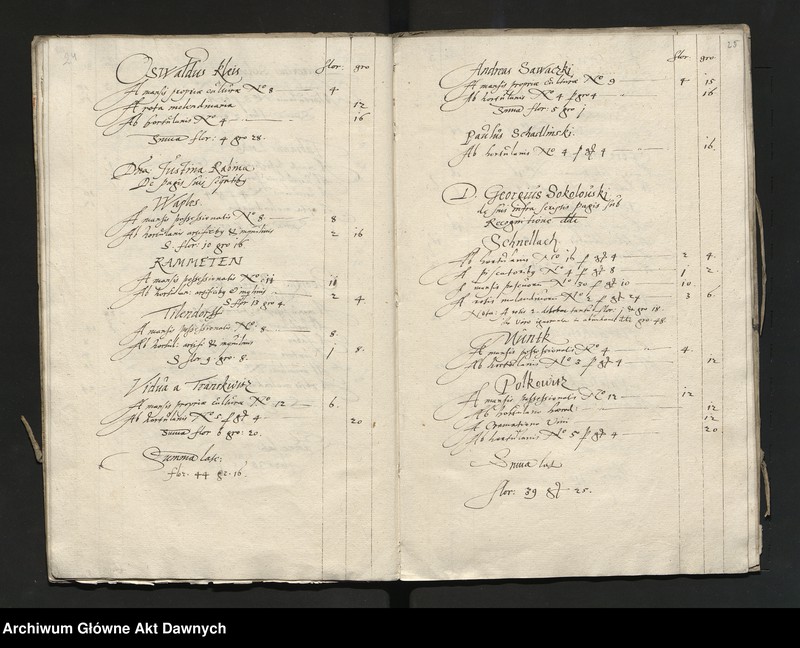 24
flor. gro
Oswaldus Kleis
A mansis propriae culturae No 8 4
A rota molendinaria 12
Ab hortulanis No 4 16
Suma flor: 4 gro 28.
Dna Justina Rabina
De pagis suis
Waples
A mansis possessionatis No 8 8
Ab hortulanis artificibus & inquilinis 2 16
S. flor: 10 gro 16
RAMMETEN
A mansis possessionatis No 11 11
Ab hortulan: artificibus & inquilinis 2 4
S flor 13 gro 4.
Tilendorff
A mansis possessionatis No 8. 8
Ab hortul: artif: & inquilinis 1 8.
S flor 9. gro: 8.
Vidua a
A mansis propriae culturae No 12 6.
Ab hortulanis No 5 p gr 4 20
Suma flor 6 gro: 20.
Summa late:
flor. 44 gr. 16.
25
flor gro
Andreas Sawaczki
A mansis propriae culturae No 9 4 15
Ab hortulanis No 4 p gro 4 16
Suma flor: 5 gro 1
Paulus
Ab hortulanis No 4 p gr 4 16.
D. Georgius Sokolowski
de suis infra scriptis pagis sub
Recognitione
Schnellach
Ab hortulanis No 16 p gr 4 2 4.
A piscatoribus No 4 p gr 8 1 2.
A mansis No 30 p gr 10 10.
A rotis molendinariis No 2 p gr 24 3 6
Nota: A rotis 2 tantum flor: 1 & gro 18.
gro 48.
Muntk
A mansis possessionatis No 4 4.
Ab hortulanis No 3 p gr 4 12
Polkewicz
A mansis possessionatis No 12 12
Ab hortulano 12
A Crematiano Vini 12
Ab hortulanis No 5 p gr 4 20
Suma lat
flor: 39 gr 25.
Archiwum Główne Akt Dawnych